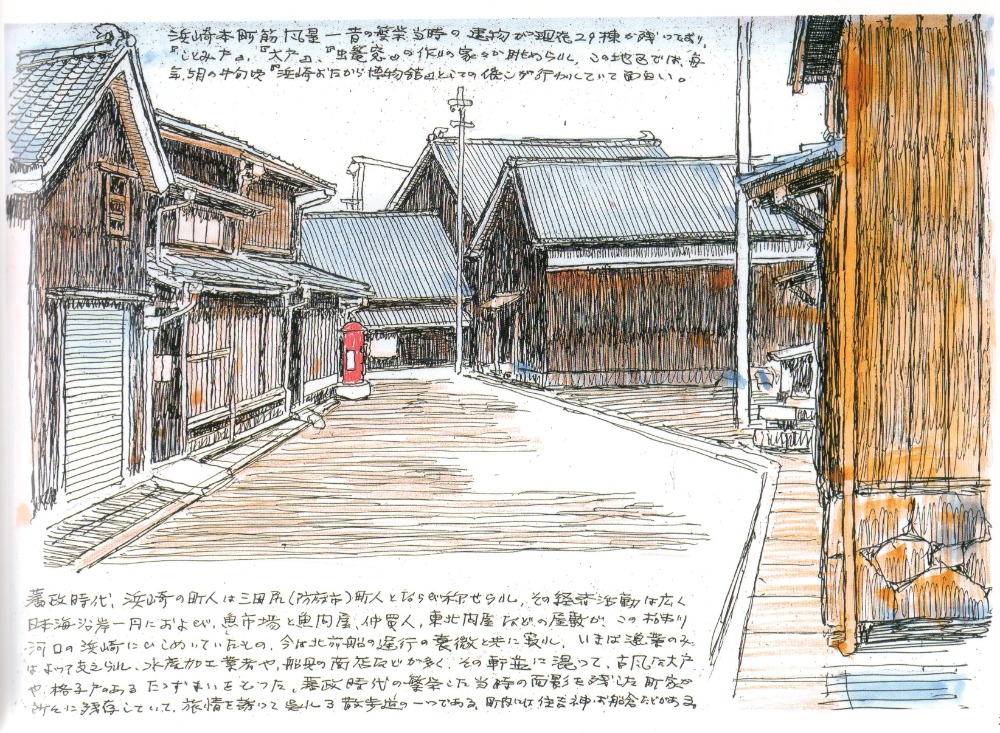 浜崎本町筋風景一昔の繁栄当時の建物が現在29棟も残っており、
『しとみ戸』、『大戸』、『出竃窓』の作りの家々が眺められ、この地区では、毎
年、5月の中旬頃『浜崎おたから博物館』としての催しが行われていて面白い。
藩政時代、浜崎の町人は三田尻(防府市)町人とならび称せられ、その経済活動は広く
日本海沿岸一円におよび、魚市場と魚問屋、仲買人、東北問屋などの屋敷が、この
河口の浜崎にひしめいていたもの、今は北前船の運行の衰微と共に寂れ、いまは漁業のみ
によって支えられ、水産加工業者や、船具の商店などが多く、その軒並に混って、古風な大戸
や、格子戸のあるたたずまいをもった、藩政時代の繁栄した当時の面影を残した町家が
所々に残存していて、旅情を誘って呉れる散歩道の一つである。町内には住吉神社、お船倉などがある。